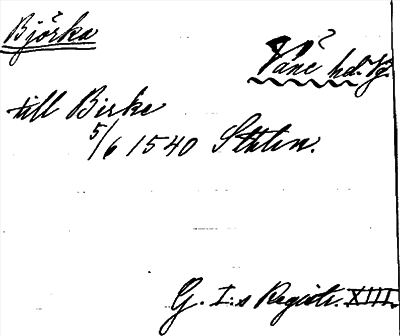 Björka
Väne hd. Vg.
till Birke
5/6 1540 Sthlm.
G. I:s Registr. XIII.